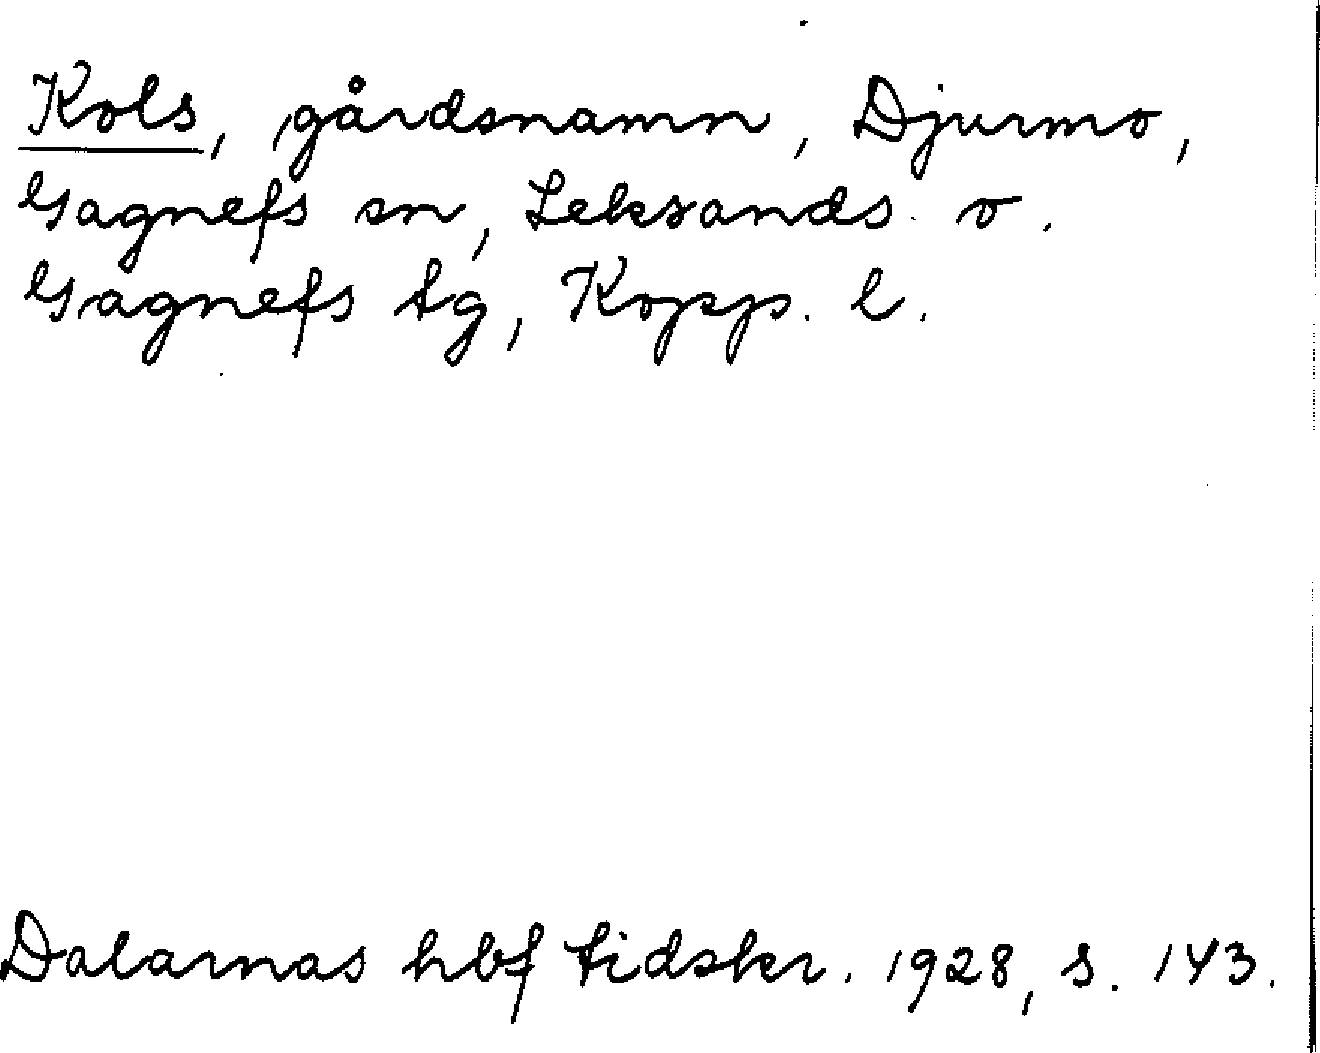 Kols, gårdsnamn, Djurmo,
Gagnefs sn, Leksands o.
Gagnefs tg, Kopp. l.
Dalarnas hbf tidskr. 1928, s. 143.